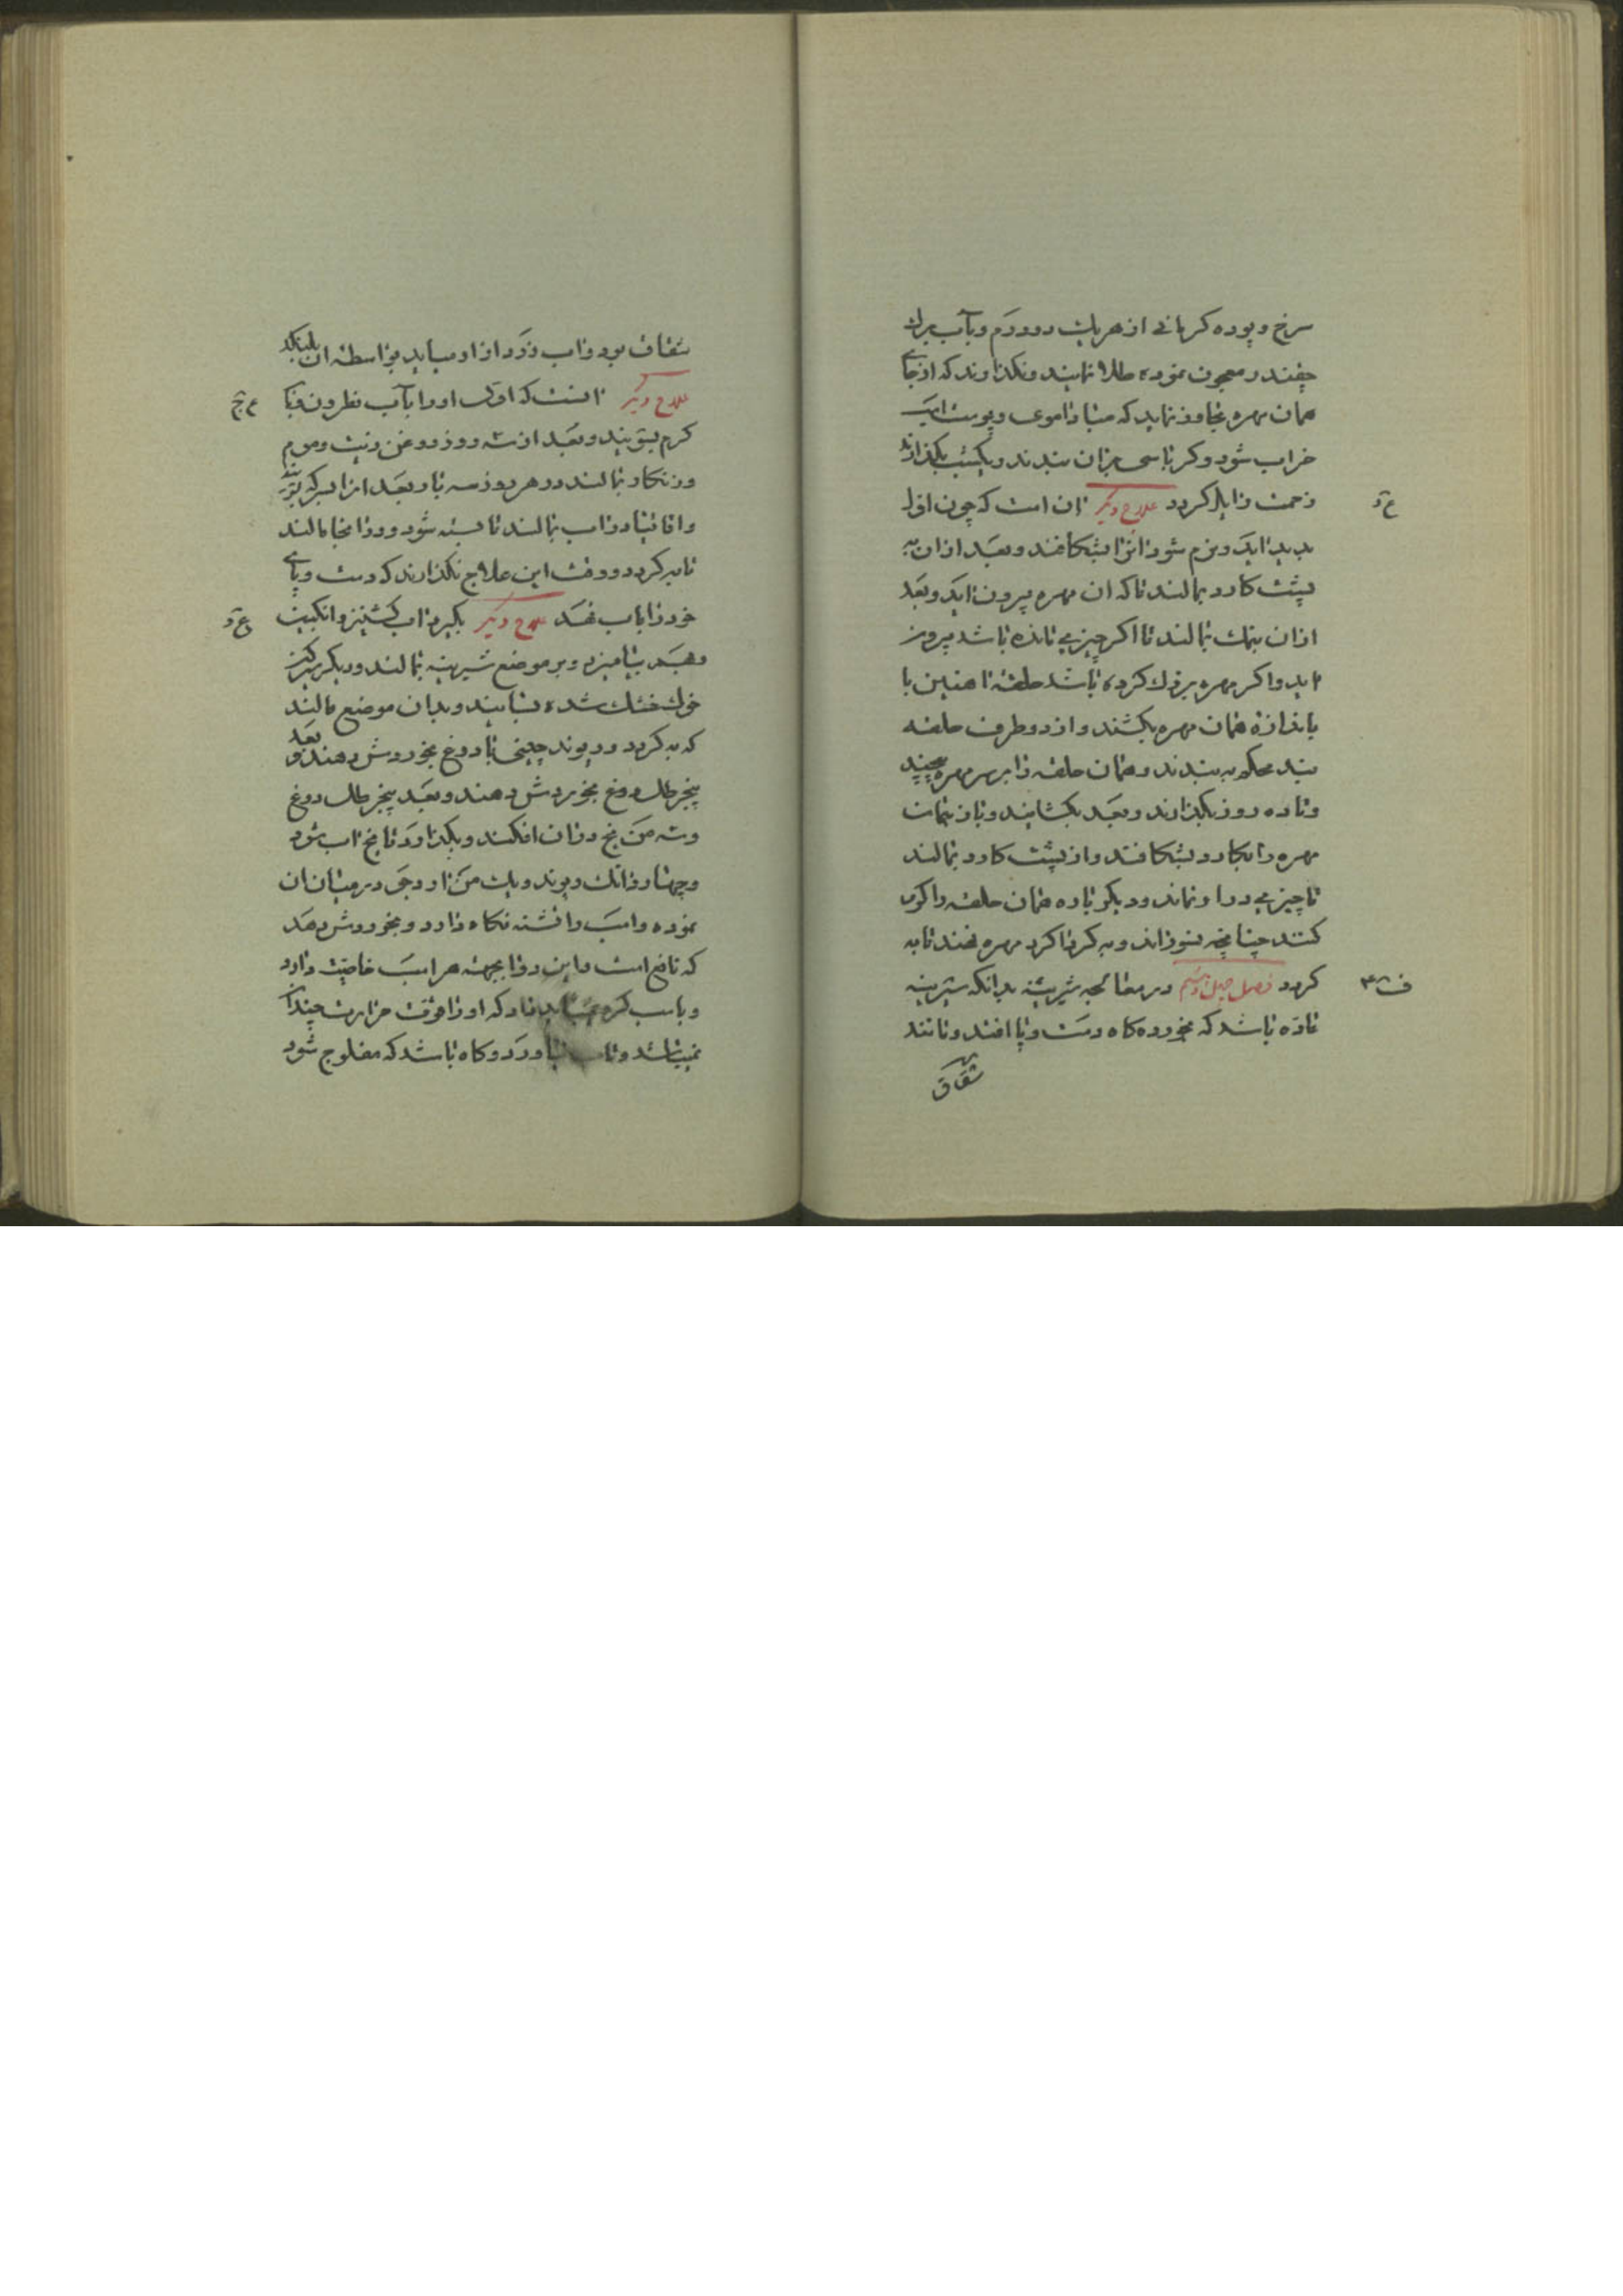 سرخ و پوره کرمانی از هر یک دو درم و بآب برک
چغندر معجون نموده طلا نمایند و نکذارند که از جای
همان مهره تجاوز نماید که مبادا موی و پوست اسب
خراب شود و کرباسی بران بندند و یکشب بکذارند
زحمت زایل کردد علاج دیکر ان است که چون اول
بدید اید و نرم شود انرا بشکافند و بعد ازان به
پشت کارد بمالند تا که ان مهره بیرون اید و بعد
ازان بنمک بمالند تا اکر چیزیی مانده باشد بیرون
اید و اکر مهره بزرک کرده باشد حلقه اهنین با
باندازه همان مهره بکشند و از دو طرف حلقه
بند محکم به بندند و همان حلقه را بر سر مهره
و تا ده روز بکذارند و بعد بکشایند و باز بنمک
مهره را بکارد بشکافند و از پشت کارد بمالند
تا چیزیی درا و نماند و دیکر باره همان حلقه را کرم
کنند چنانچه بسوزاند و به کرداکرد مهره نهند تا به
کردد فصل چهل و ششم در معالجه شرینه بدانکه شرینه
ماده باشد که بخورده کاه دست و پا افتد و مانند
شقاق
ع دَ
شقاق بود و اب زرد از او میاید بواسطه ان بلنکد
علاج دیکر انست که اول او را بآب نطرون و با
کرم بشویند و بعد از سه روز روغن زیت و موم
و زنکار بمالند در هر روز سه بار و بعد ازا سرکه
واقاقیا در اب بمالند تا بسته شود و دوا بخا مالند
تا به کردد و وقت این علاج نکذارند که دست و پای
خود را باب نهد علاج دیکر بکیرد اب کشنیز و انکبین
و بهم بیامیزد و بر موضع شیرینه بمالند و دیکر سرکین
خوک خشک شده بسایند و بدان موضع مالند
که به کردد و ریوند چینی با دوغ بخوردش دهند و بعد
پنج رطل دوغ بخوردش دهند و بعد پنج رطل دوغ
و سه من یخ دران افکند و بکذارد تا یخ اب شود
و چهار دانک ریوند و یک من ارد جی در میان ان
نموده و اسب را تشنه نکاه دارد و بخوردش دهد
که نافع است و این دوا بجهته هر اسب خاصیت دارد
و باسب کره نباید داد که او را قوت حرارت چندان
نمیباشد و تاب نیاورد و کاه باشد که مفلوج شود